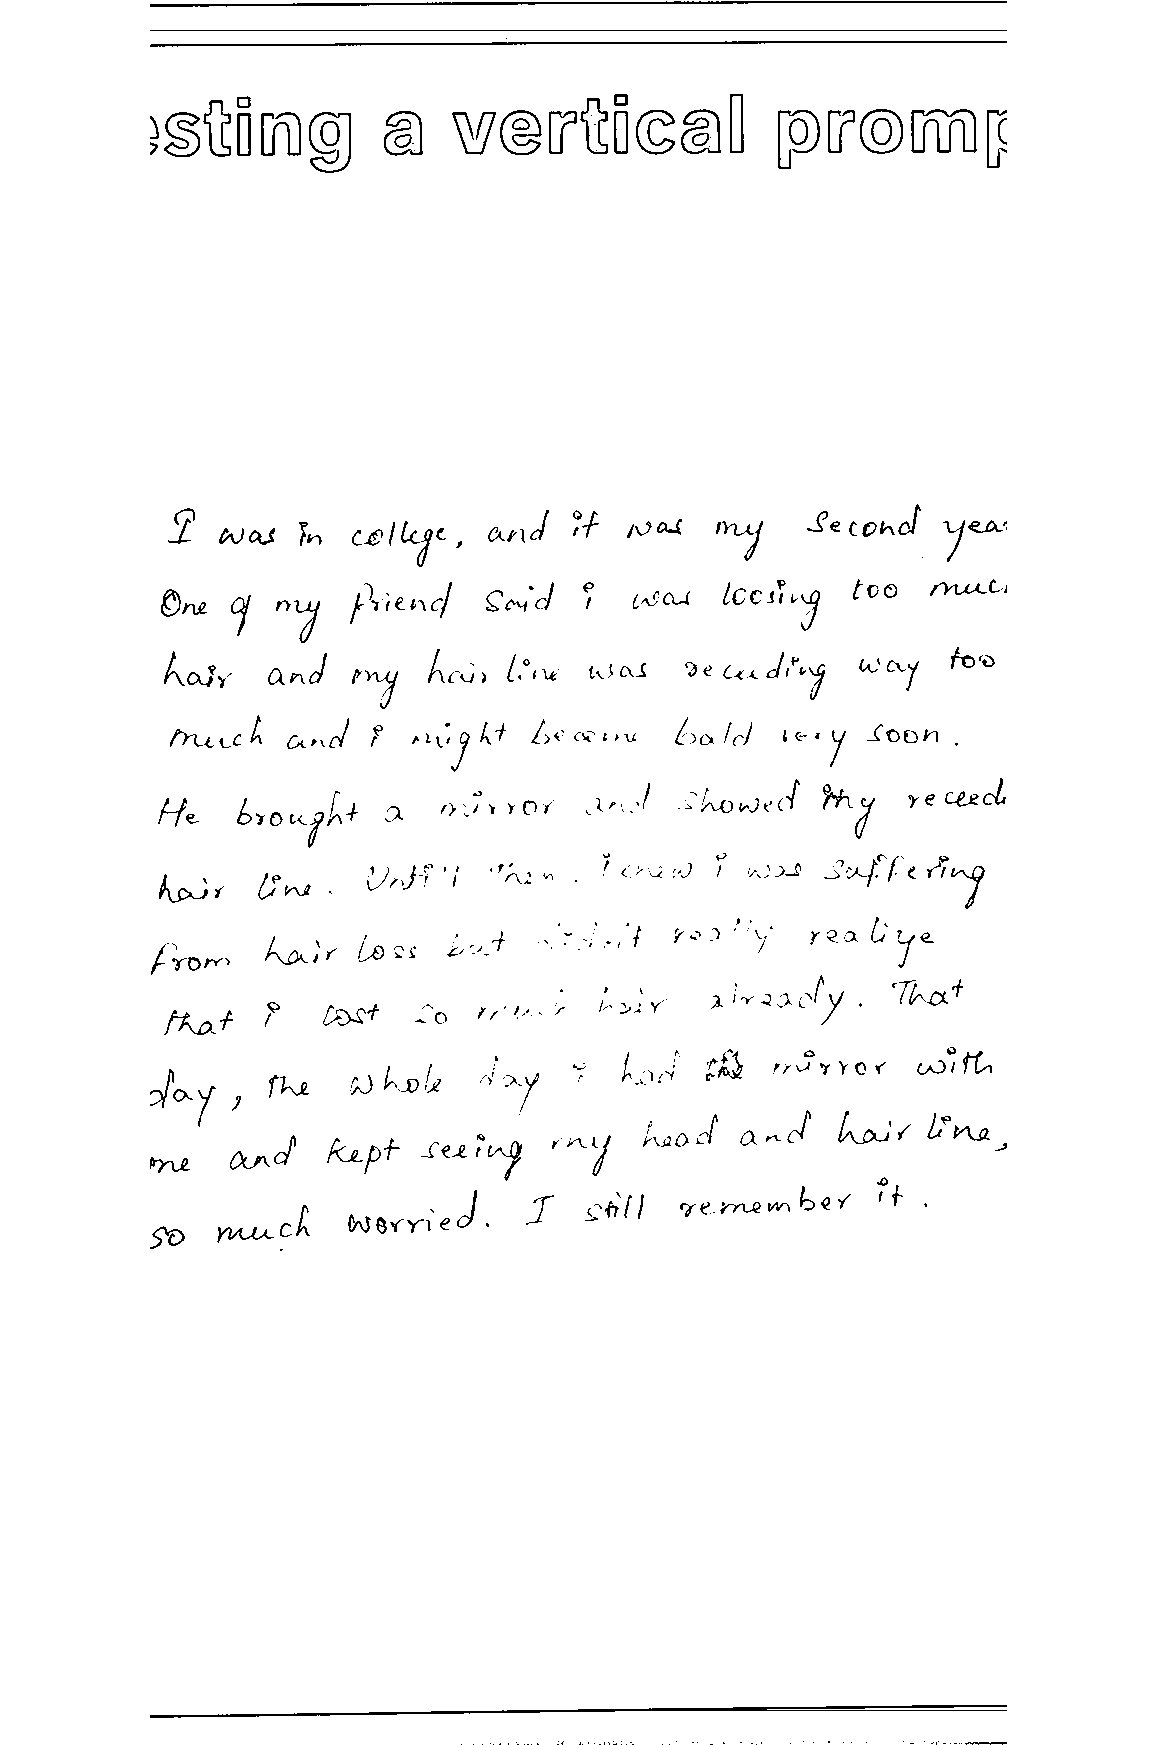 esting a vertical promp
I was in college, and it was my second year
One of my friend said i was loosing too much
hair and my hair line was receeding way too
much and i might become bald very soon.
He brought a mirror and showed my receed
hair line. Untill then. I knew i was suffering
from hair loss but didn't really realize
that i lost so much hair already. That
day, the whole day i had the mirror with
me and kept seeing my head and hair line,
so much worried. I still remember it.